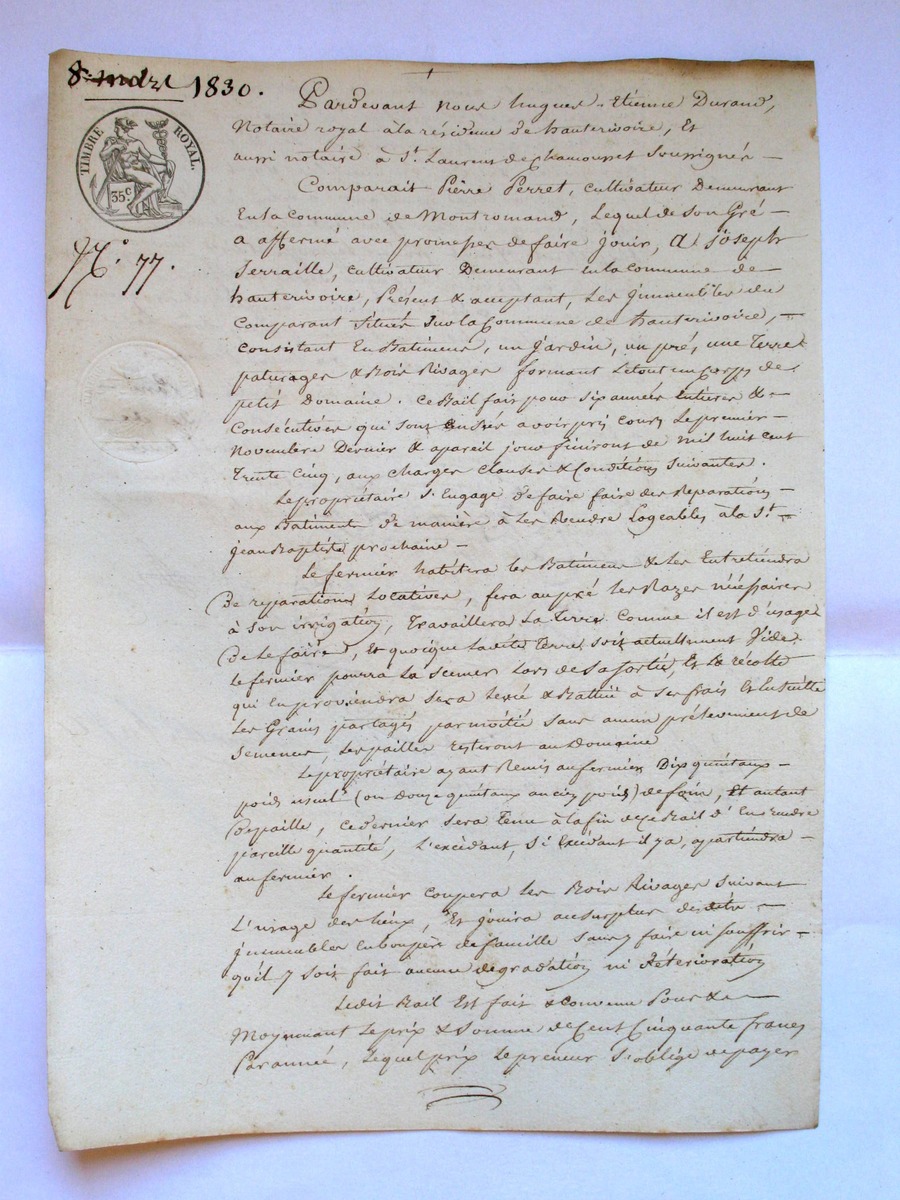 1830.
TIMBRE ROYAL.
35 c
N.° 77.
Pardevant nous hugues-Etienne Durand,
Notaire royal à la résidence de hauterivoire, Et
aussi notaire à S.t Laurent de chamousset Soussignés —
Comparait Pierre Perret, cultivateur Demeurant
En la commune de Montromand, Lequel de Son Gré —
a affermé avec promesse de faire jouir, A Joseph
Terraille, cultivateur Demeurant en la commune de —
hauterivoire, Présent & acceptant, Les jmmeubles du
Comparant Situés Sur la Commune de hauterivoire, —
consistant En Batimens, un jardin, un pré, une Terre
paturages & Bois Rivages formant Le tout un corps de
petit Domaine. Ce Bail fait pour Six années Entières &
Consécutives qui Sont Censées avoir pris cours Le premier
Novembre Dernier & à pareil jour finiront de mil huit cent
Trente Cinq, aux charges clauses & Conditions Suivantes.
Le propriétaire S'Engage de faire faire des Réparations —
aux Batiments de manière à Les Rendre Logeables à la S.t —
jean Baptiste prochaine —
Le fermier habitera les Batimens & Les Entretiendra
De réparations Locatives, fera au pré les Razes nécessaires
à Son irrigation, Travaillera La Terre Comme il est d'usage
De Le faire, Et quoique Ladite Terre Soit actuellement Vide
Le fermier pourra La Semer Lors de Sa Sortie, Et La récolte
qui En proviendra Sera Levée & Battue à Ses frais & Ensuite
Les Grains partagés par moitié Sans aucun prélèvement de
Semences, Les pailles resteront au Domaine
Le propriétaire ayant Remis au fermier Dix quintaux —
poids usuel (ou Douze quintaux ancien poids) de foin, Et autant
De paille, ce dernier Sera Tenu à la fin de ce Bail d'En rendre
pareille quantité, L'excédant, Si Excédant il y a, appartiendra —
au fermier.
Le fermier Coupera Les Bois Rivages Suivant
L'usage des Lieux, Et jouira au Surplus desdits —
jmmeubles En bon père de famille Sans y faire ni Souffrir —
qu'il y Soit fait aucune dégradation ni Détérioration
Ledit Bail Est fait & Convenu Pour &
Moyennant Le prix & Somme de Cent Cinquante francs
Par année, Lequel prix Le preneur S'oblige de payer